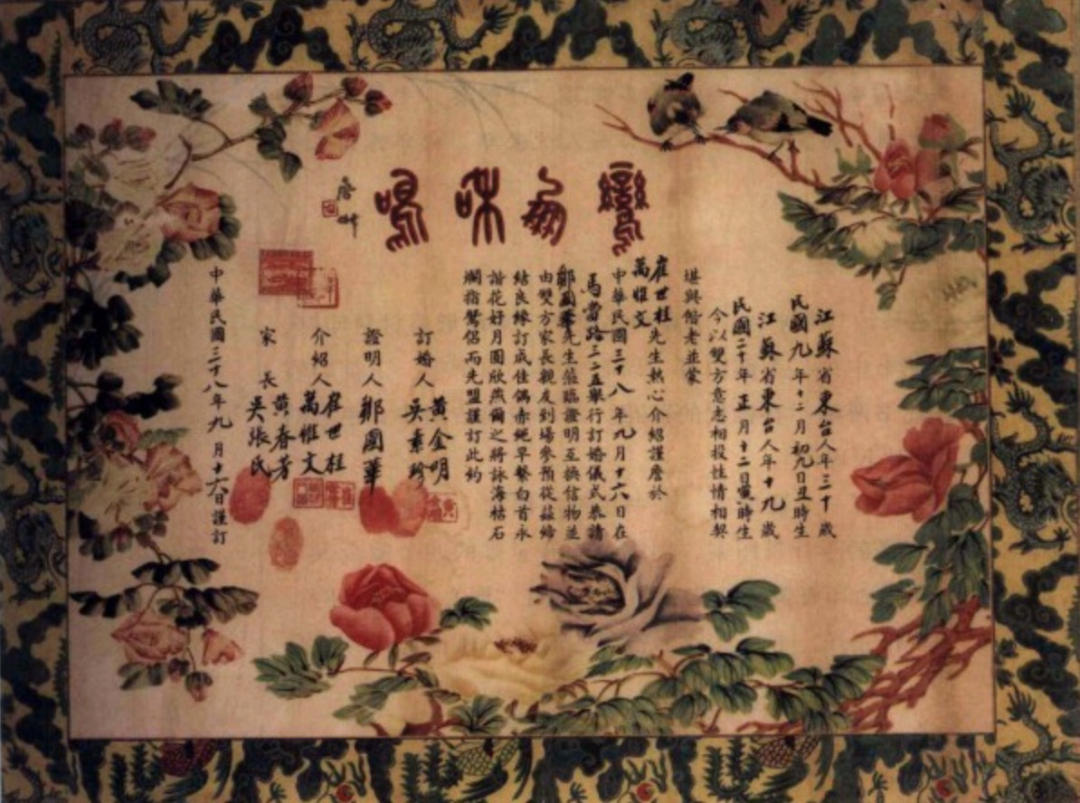 鸞鳳和鳴
江蘇省東台人年三十歲
民國九年十二月初九日丑時生
江蘇省東台人年十九歲
民國二十年正月十二日寅時生
今以雙方意志相投性情相契
堪與偕老並蒙
崔世桂
萬惟文先生熱心介紹謹詹於
中華民國三十八年九月十六日在
馬當路二二五舉行訂婚儀式恭請
鄭國華先生蒞臨證明互換信物並
由雙方家長親友到場參預從茲締
結良緣訂成佳偶赤繩早繫白首永
諧花好月圓欣燕爾之將詠海枯石
爛指鴛侶而先盟謹訂此約
訂婚人
黃金明
吳素珍
證明人鄭國華
介紹人
崔世桂
萬惟文
家長
黃春芳
吳張氏
中華民國三十八年九月十六日謹訂